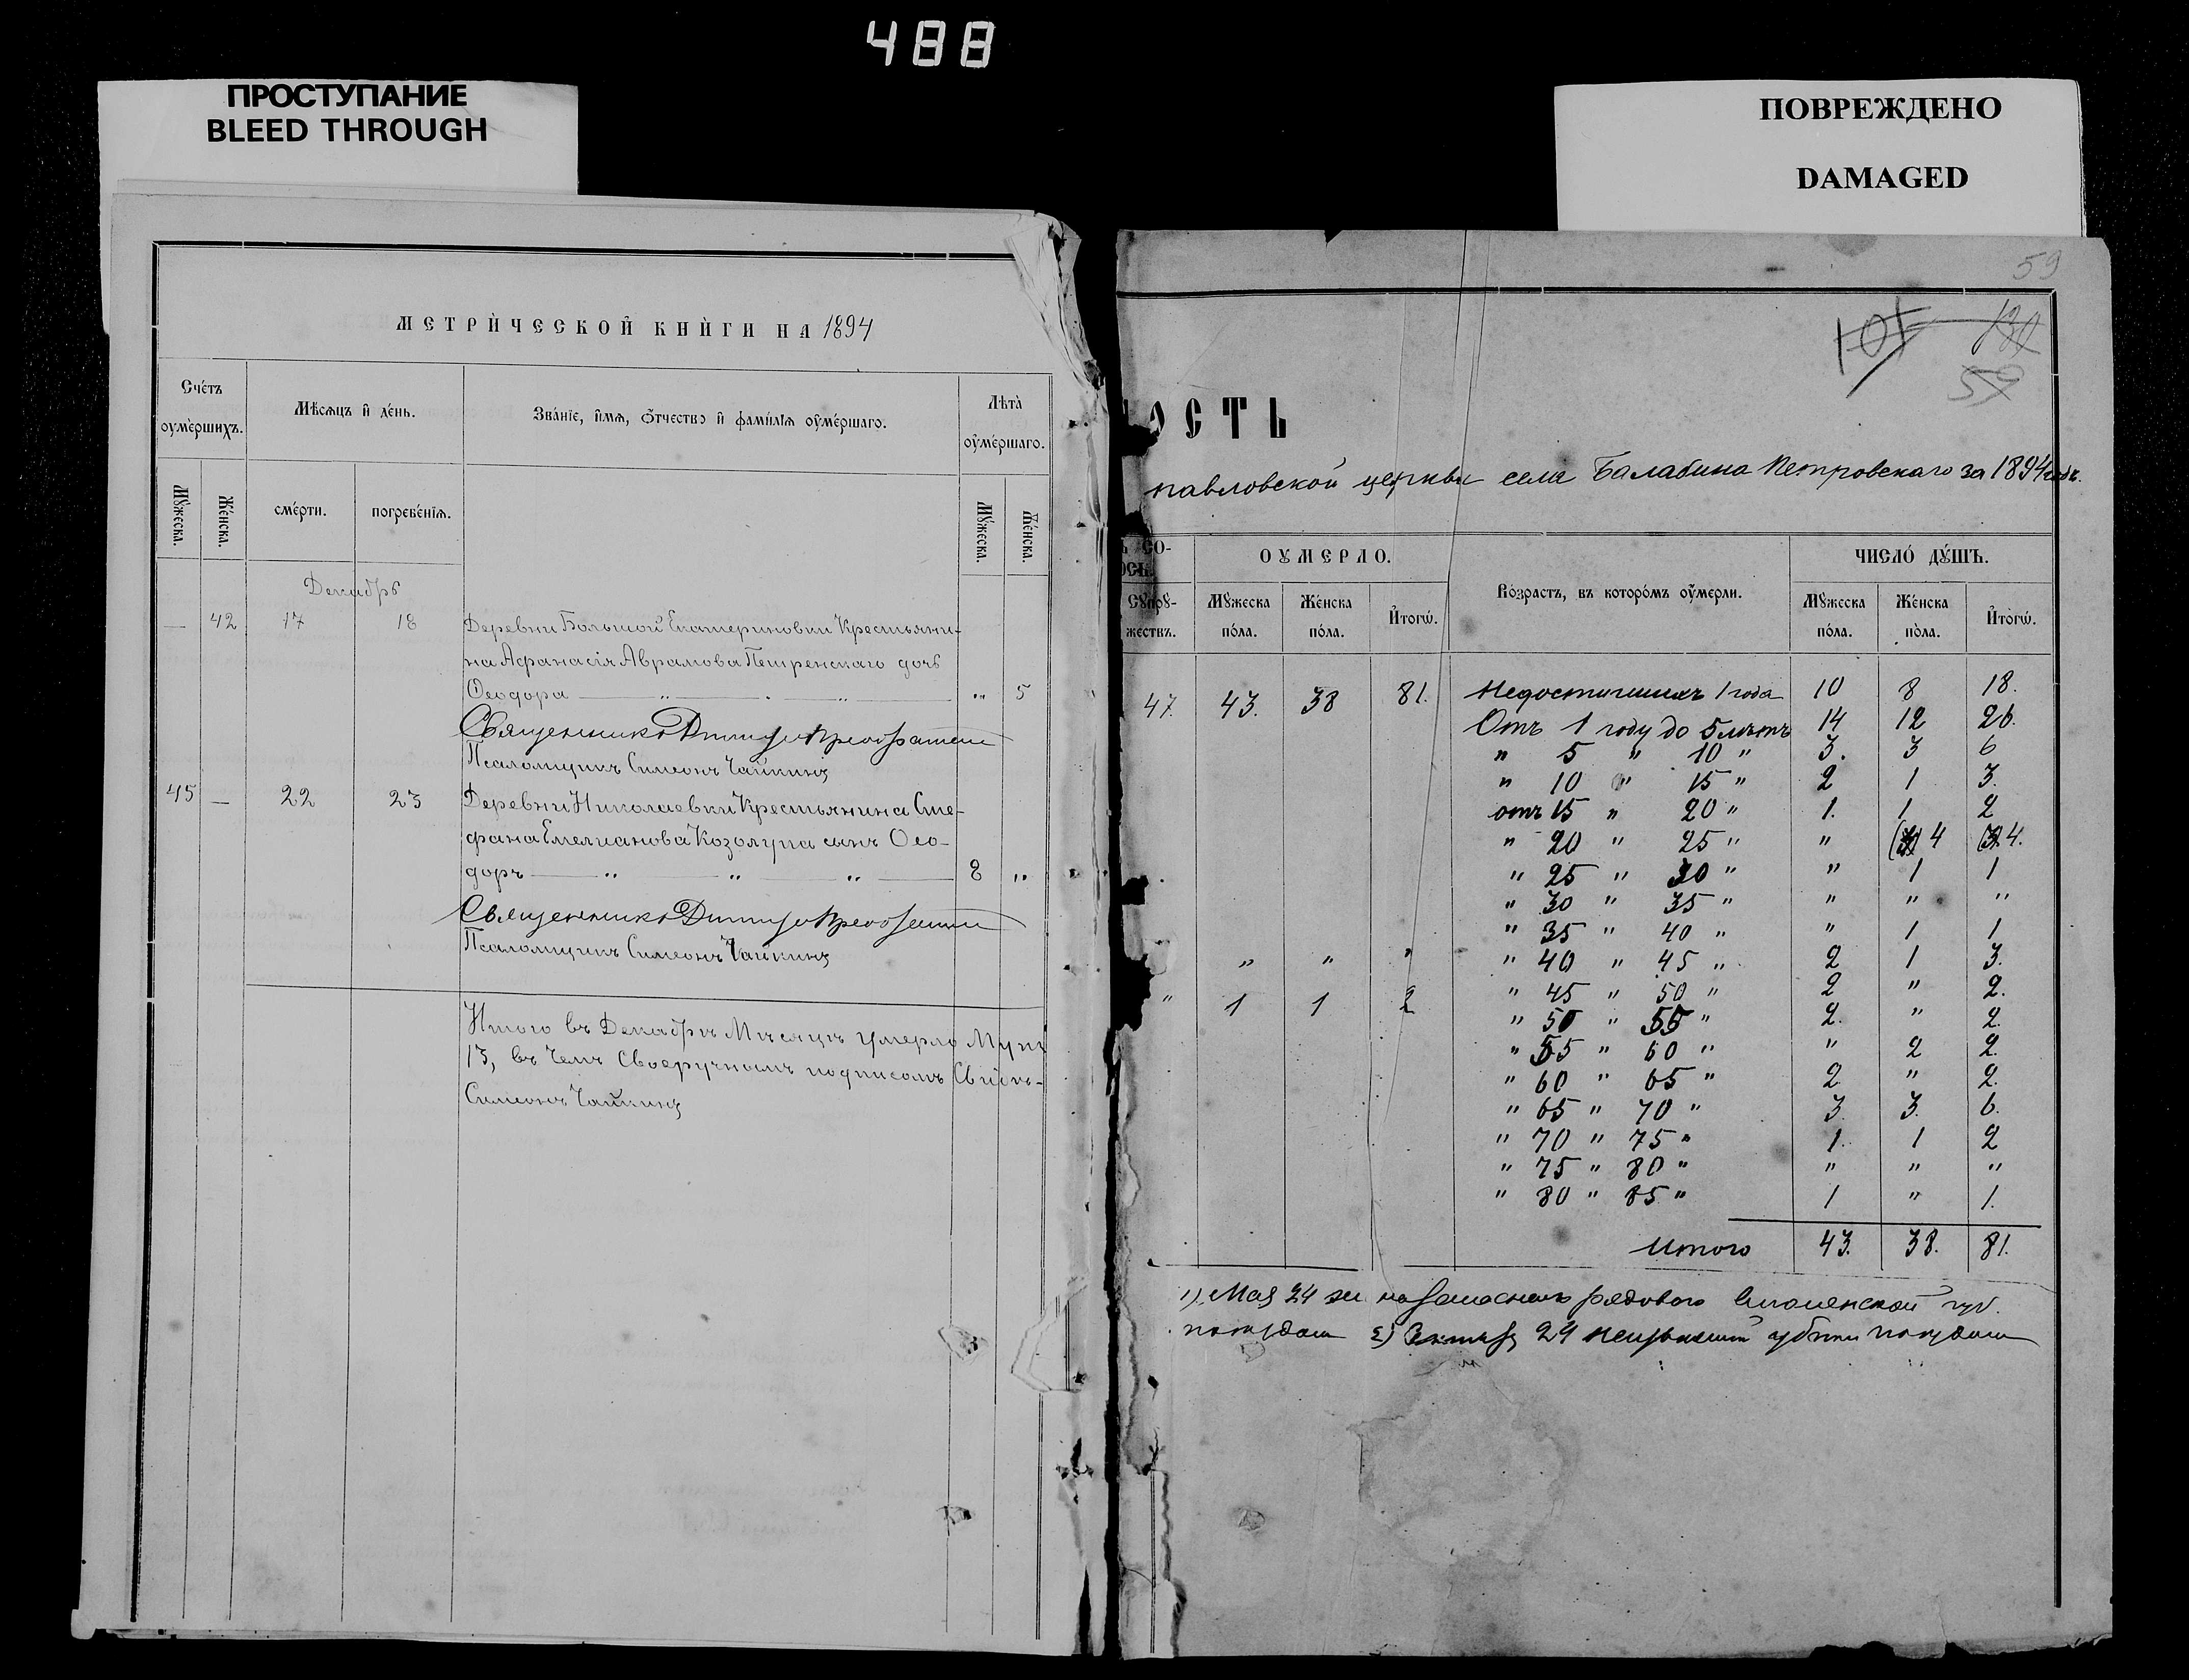 488
ПРОСТУПАНИЕ
BLEED THROUGH
ПОВРЕЖДЕНО
DAMAGED
МЕТРИЧЕСКОЙ КНИГИ НА 1894
Счетъ оумершихъ.
Мѣсяцъ и день.
Званіе, имя, отчество и фамилія оумершаго.
Лѣта оумершаго.
Мужеска.
Женска.
смерти.
погребенія.
Мужеска.
Женска.
Декабрь
— 42 17 18 Деревни Большой Екатериновки Крестьяни-
на Афанасія Аврамова Петренскаго дочь
Ѳеодора — „ — „ — „ 5
Священникъ Димитрій
Псаломщикъ Симеонъ Чайкинъ
45 — 22 23 Деревни Николаевки Крестьянина Сте-
фана Емелианова Козолупа сынъ Ѳео-
доръ — „ — „ — „ — 8 „
Священникъ Димитрій
Псаломщикъ Симеонъ Чайкинъ
Итого въ Декабрѣ Мѣсяцѣ умерло
13, въ чемъ Своеручнымъ подписомъ
Симеонъ Чайкинъ
59
101 130
59
ОСТЬ
павловской церкви села Балабина Петровскаго за 1894 годъ.
Ъ СО-
ОСЬ.
ОУМЕРЛО.
Возрастъ, въ которомъ оумерли.
ЧИСЛО ДУШЪ.
Супру-
жествъ.
Мужеска пола.
Женска пола.
Итого.
Мужеска пола.
Женска пола.
Итого.
47. 43. 38 81. Недостигшихъ 1 года 10 8 18.
Отъ 1 году до 5 лѣтъ 14 12 26.
„ 5 „ 10 „ 3. 3 6
„ 10 „ 15 „ 2 1 3.
отъ 15 „ 20 „ 1. 1 2
„ 20 „ 25 „ „ (3) 4 (3) 4.
„ 25 „ 30 „ „ 1 1
„ 30 „ 35 „ „ „ „
„ 35 „ 40 „ „ 1 1
„ „ „ „ 40 „ 45 „ 2 1 3.
„ 1 1 2 „ 45 „ 50 „ 2 „ 2.
„ 50 „ 55 „ 2. „ 2.
„ 55 „ 60 „ „ 2 2.
„ 60 „ 65 „ 2 „ 2.
„ 65 „ 70 „ 3. 3. 6.
„ 70 „ 75 „ 1. 1 2
„ 75 „ 80 „ „ „ „
„ 80 „ 85 „ 1 „ 1.
Итого 43. 38. 81.
1) Мая 24 рядового Смоленской губ.
2) 29